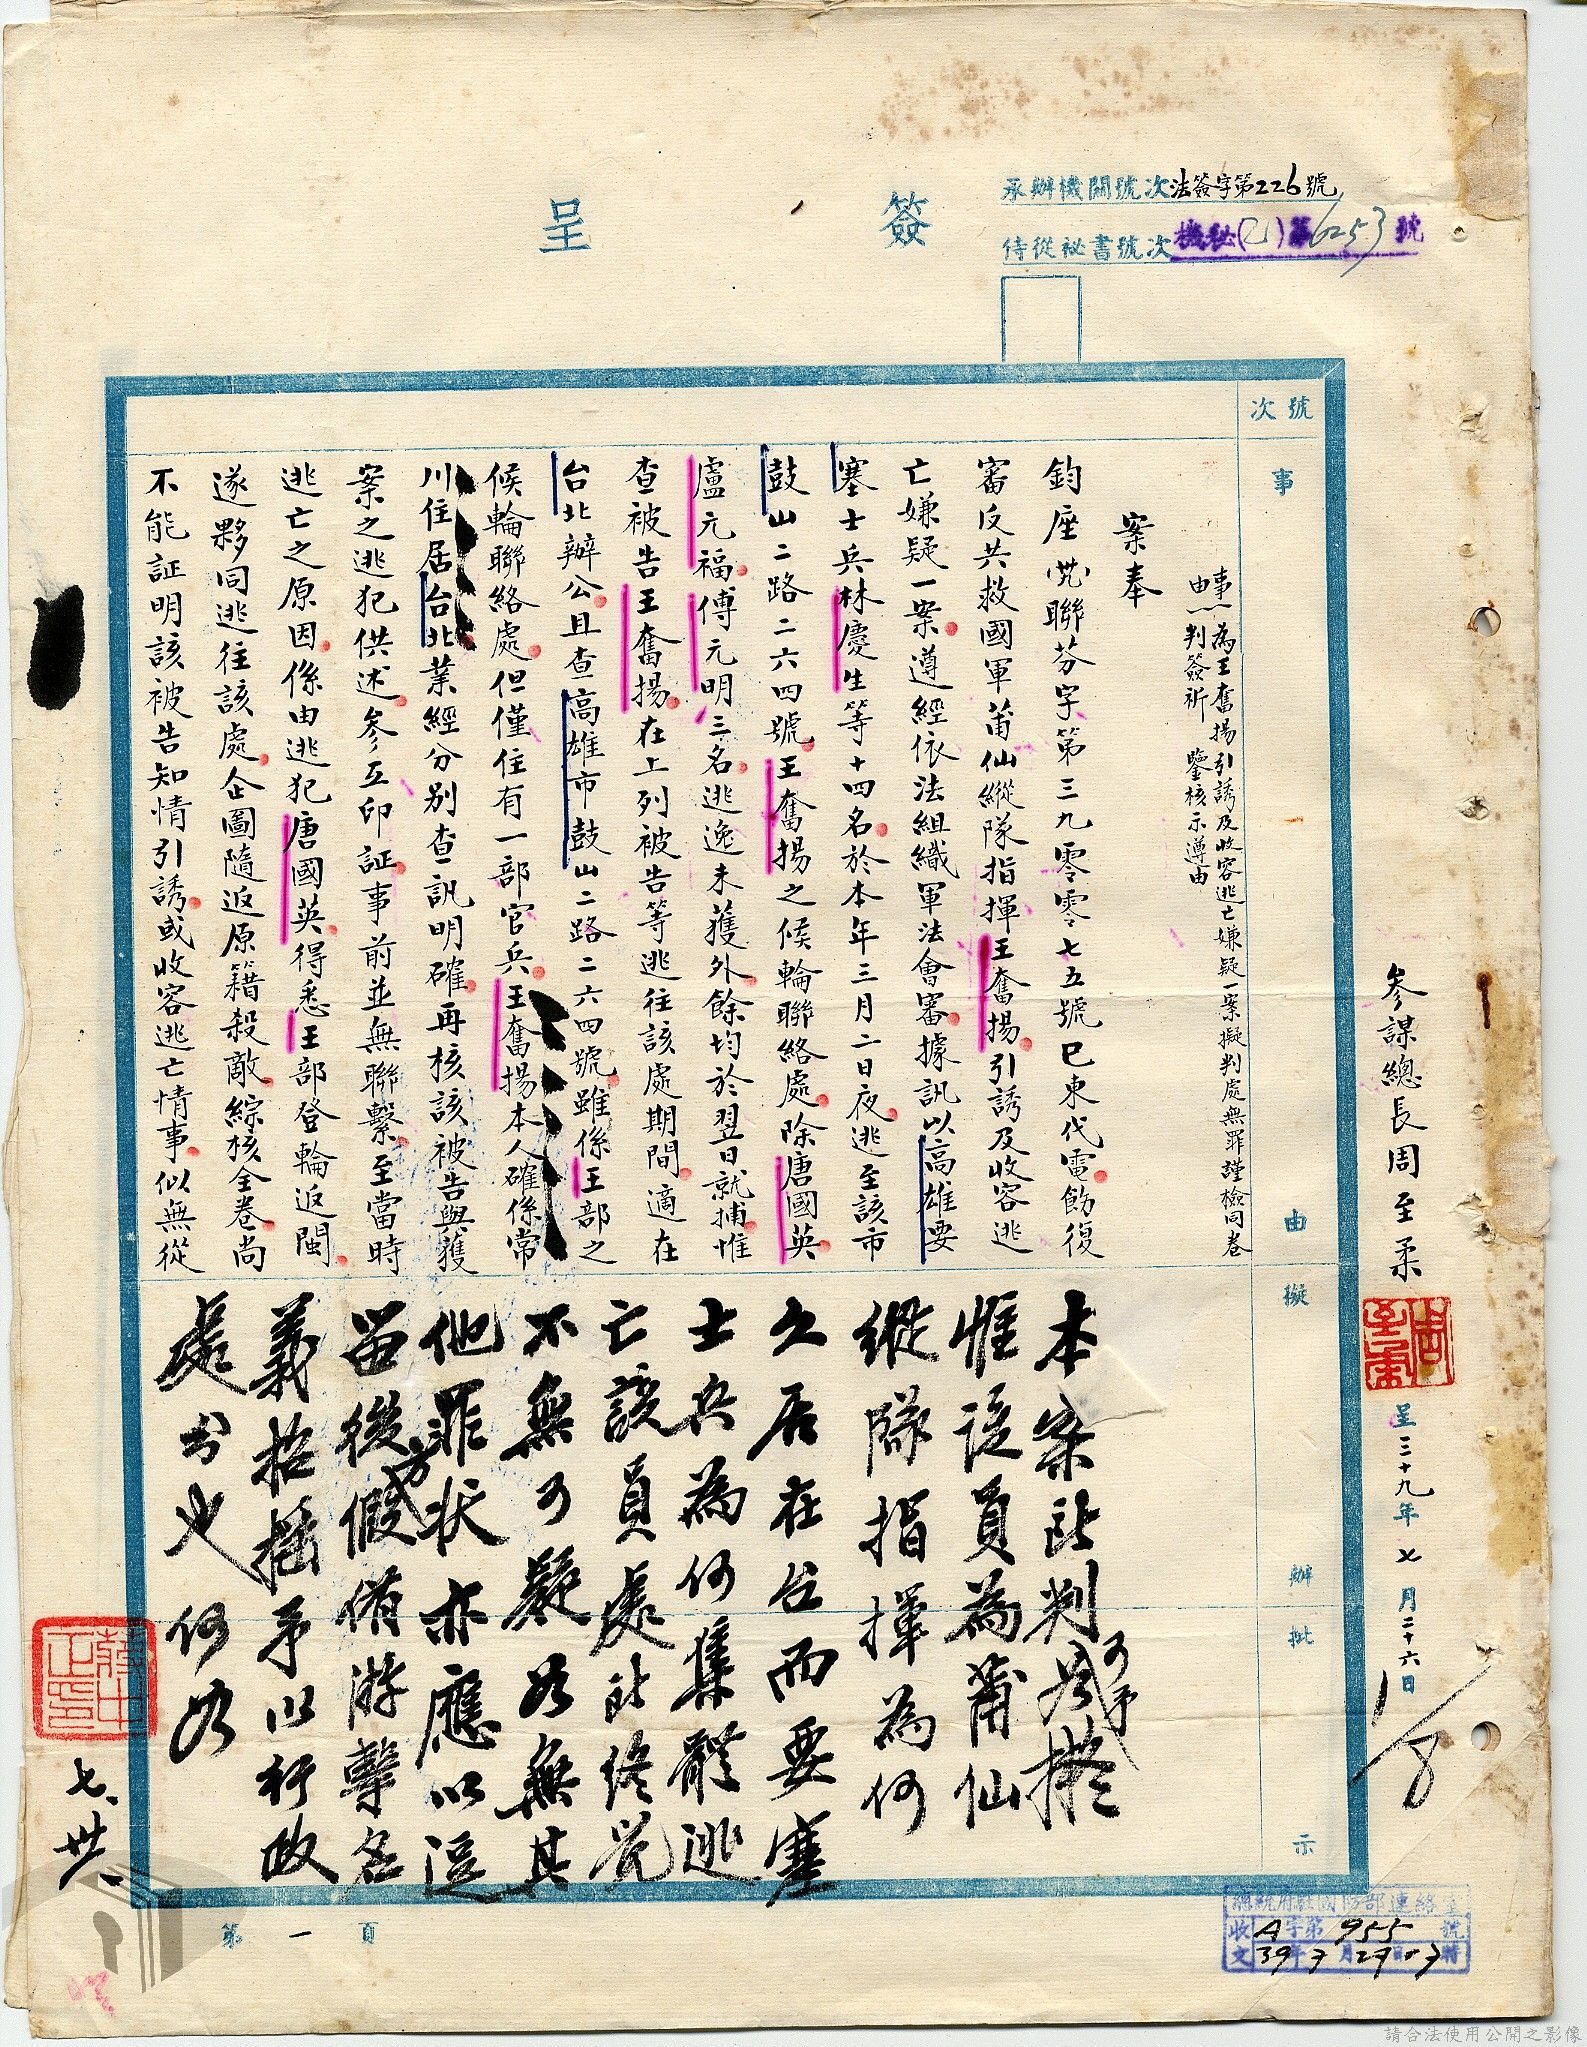 簽呈
承辦機關號次法簽字第226號
侍從祕書號次機秘(乙)第6253號
參謀總長周至柔
周至柔
呈三十九年七月二十六日
1/8
號次
事由
擬辦
批示
事由
為王奮揚引誘及收容逃亡嫌疑一案擬判處無罪謹檢同卷
判簽祈 鑒核示遵由
案奉
鈞座聯芬字第三九零零七五號巳東代電飭復
審反共救國軍莆仙縱隊指揮王奮揚引誘及收容逃
亡嫌疑一案遵經依法組織軍法會審據訊以高雄要
塞士兵林慶生等十四名於本年三月二日夜逃至該市
鼓山二路二六四號王奮揚之候輪聯絡處除唐國英
盧元福傅元明三名逃逸未獲外餘均於翌日就捕惟
查被告王奮揚在上列被告等逃往該處期間適在
台北辦公且查高雄市鼓山二路二六四號雖係王部之
候輪聯絡處但僅住有一部官兵王奮揚本人確係常
川住居台北業經分別查訊明確再核該被告與獲
案之逃犯供述參互印証事前並無聯繫至當時
逃亡之原因係由逃犯唐國英得悉王部登輪返閩
遂夥同逃往該處企圖隨返原籍殺敵綜核全卷尚
不能証明該被告知情引誘或收容逃亡情事似無從
本案所判可予照擬
惟該員為莆仙
縱隊指揮為何
久居在台而要塞
士兵為何集體逃
亡該員處所終覺
不無可疑如無其
他罪狀亦應以這
留後方假借游擊名
義招搖予以行政
處分也何如
蔣中正印
七、卅、
第一頁
總統府駐國防部連絡室
收文A字第955號
39年7月29日 時
請合法使用公開之影像